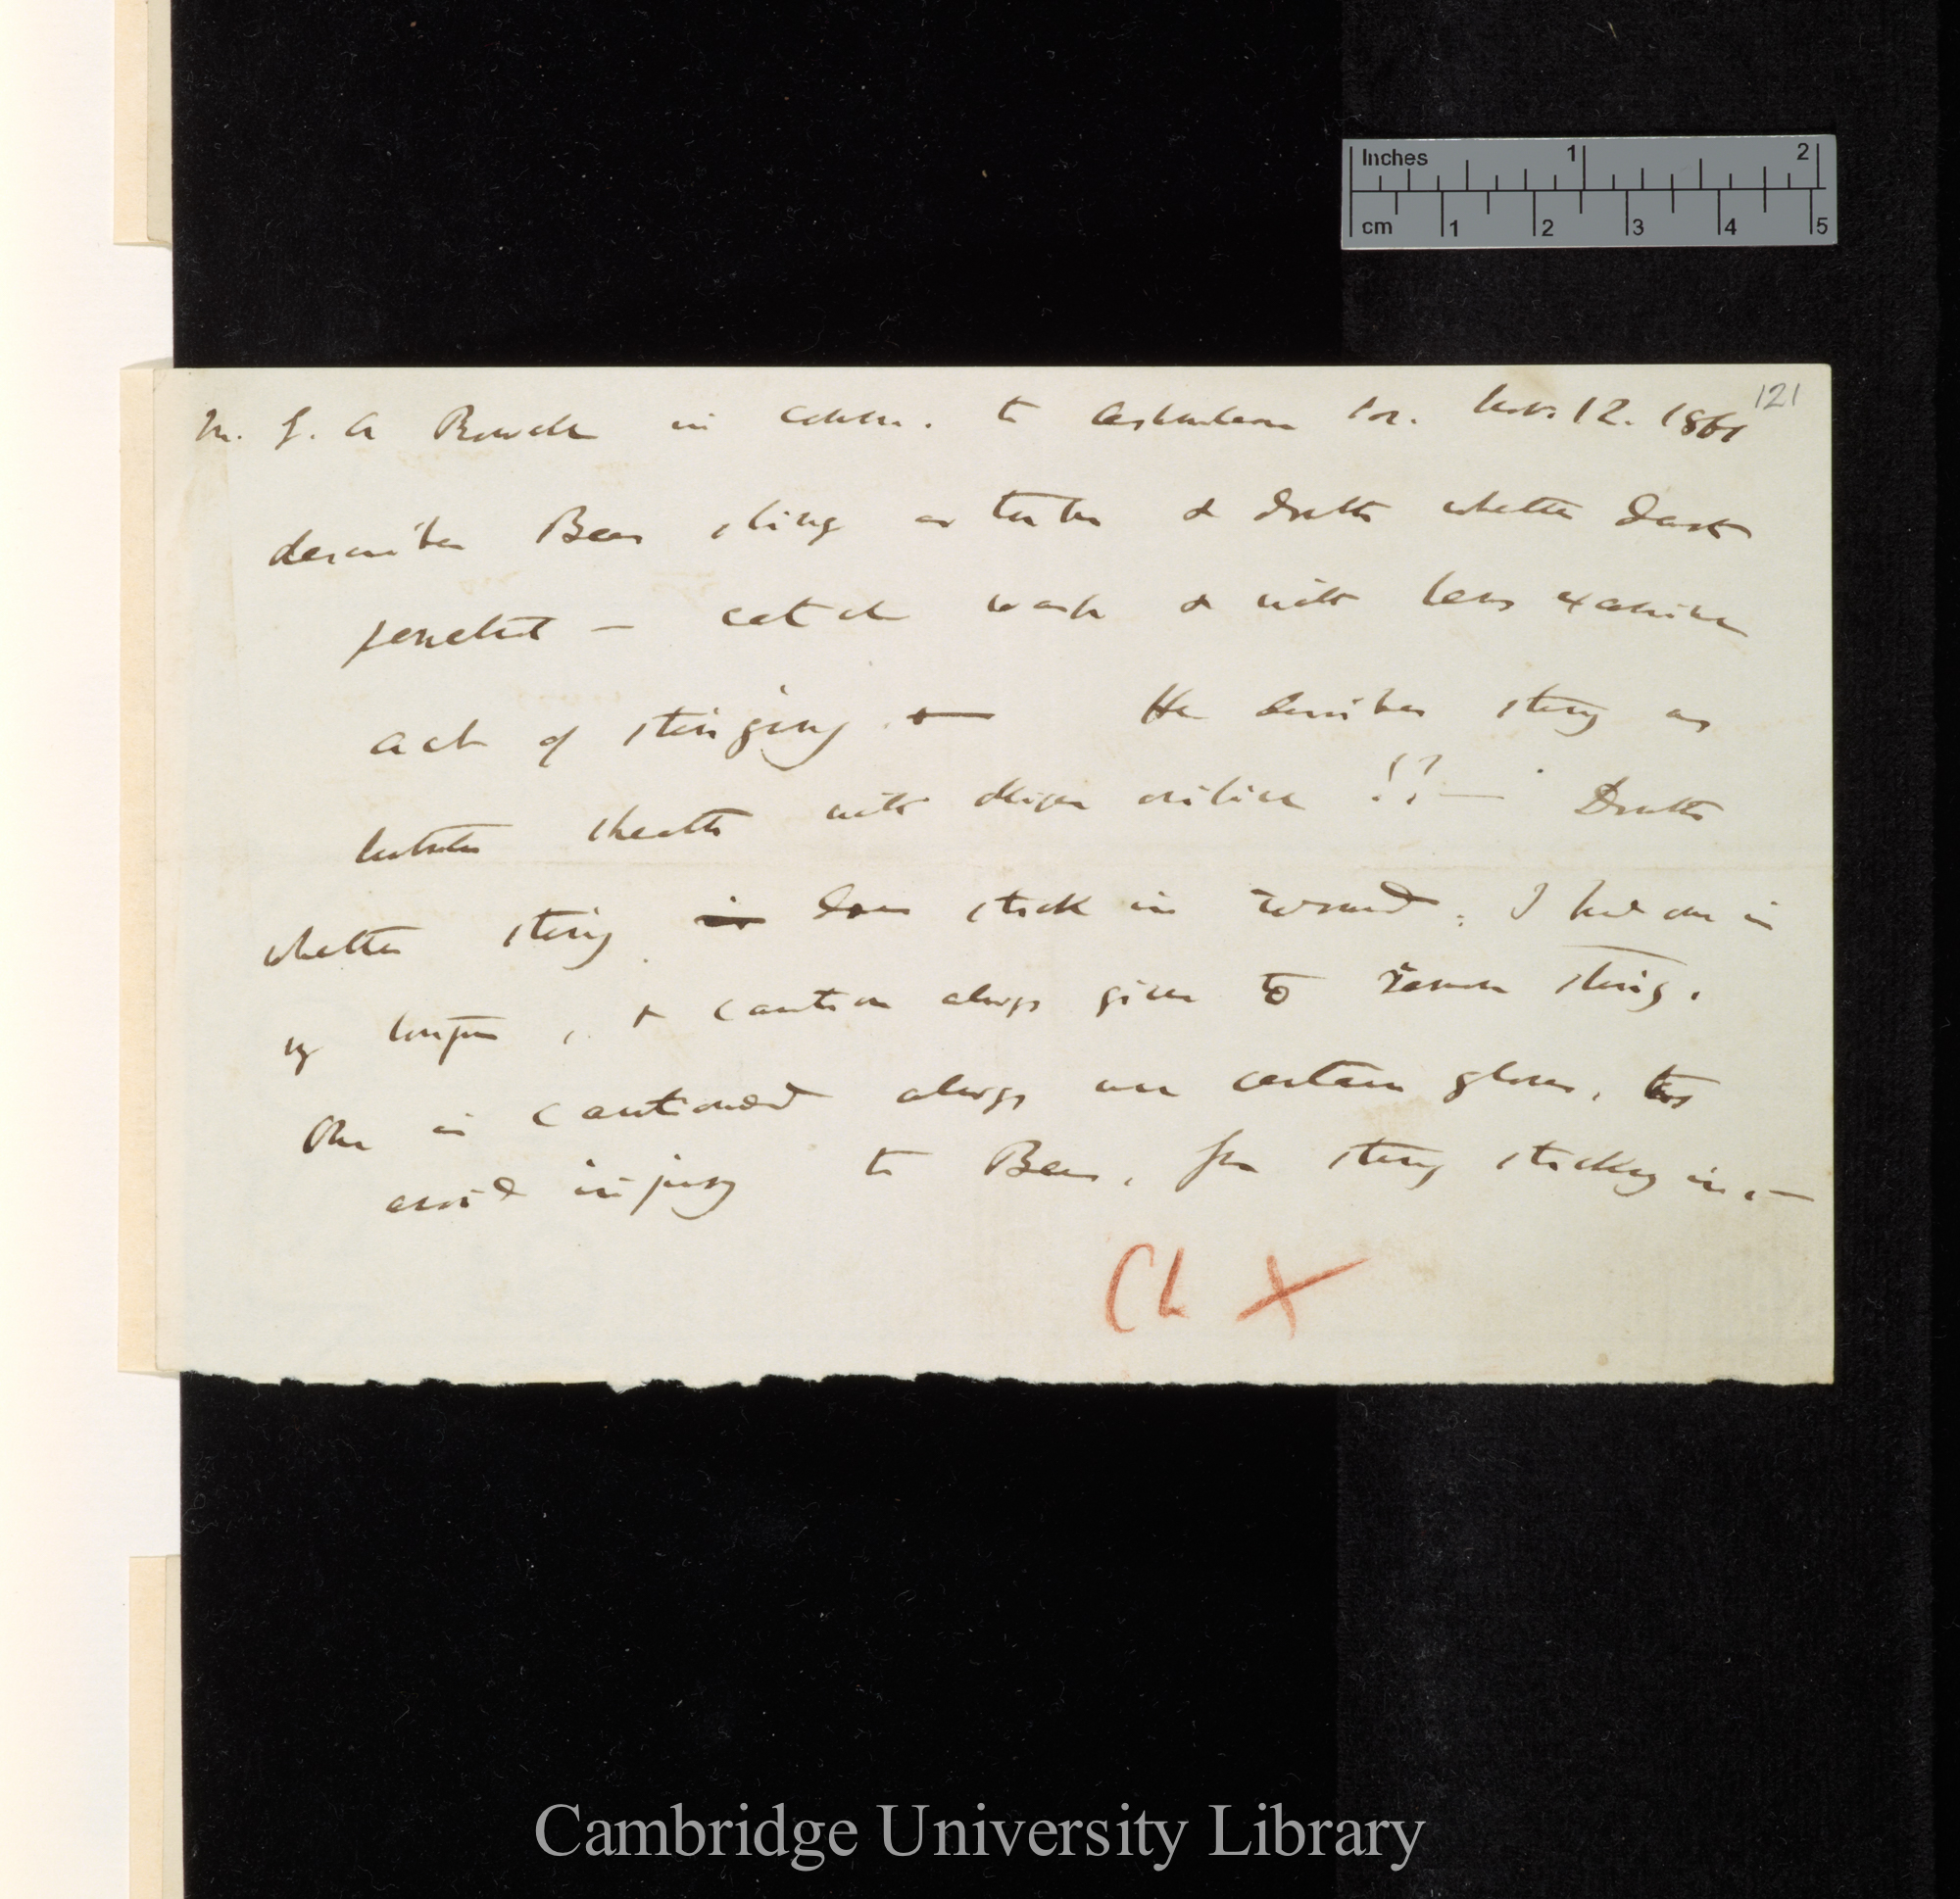 Inches 1 2
cm 1 2 3 4 5
121
M. G. A Bowell in comm. to Soc. Nov. 12. 1861
describes Bees sting as tube & doubts whether darts
penetrate — catch wasp & with lens examine
act of stinging. He describes sting as
sheath with oblique orifice !?— Doubts
whether sting is does stick in wound. I had one in
my tongue, & caution always given to remove sting.
One is cautioned always use certain gloves, to
avoid injury to Bees, from sting sticking in.—
Ch X
Cambridge University Library